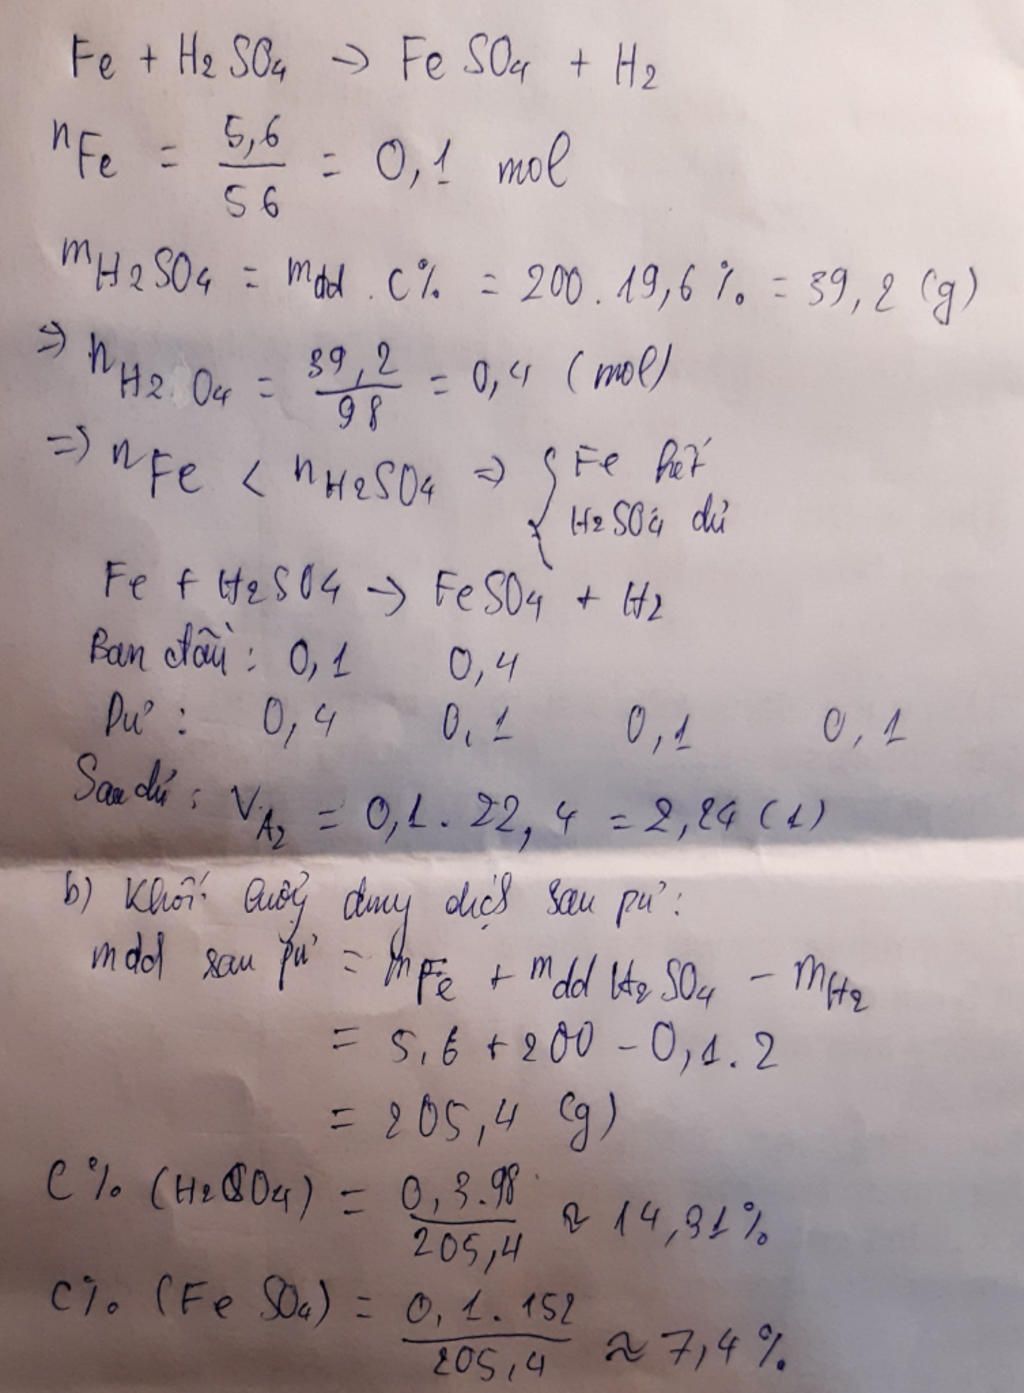 Fe + H2SO4 → FeSO4 + H2
nFe = 5,6/56 = 0,1 mol
mH2SO4 = mdd . C% = 200 . 19,6% = 39,2 (g)
⇒ nH2 O4 = 39,2/98 = 0,4 (mol)
⇒ nFe < nH2SO4 ⇒ { Fe hết
H2SO4 dư
Fe + H2SO4 → FeSO4 + H2
Ban đầu : 0,1 0,4
Dư : 0,4 0,1 0,1 0,1
Sau dư : VA2 = 0,1 . 22,4 = 2,24 (l)
b) Khối lượng dung dịch sau pư :
mdd sau pư = mFe + mdd H2SO4 - mH2
= 5,6 + 200 - 0,1 . 2
= 205,4 (g)
C% (H2SO4) = 0,3.98/205,4 ≈ 14,31%
C% (FeSO4) = 0,1.152/205,4 ≈ 7,4%